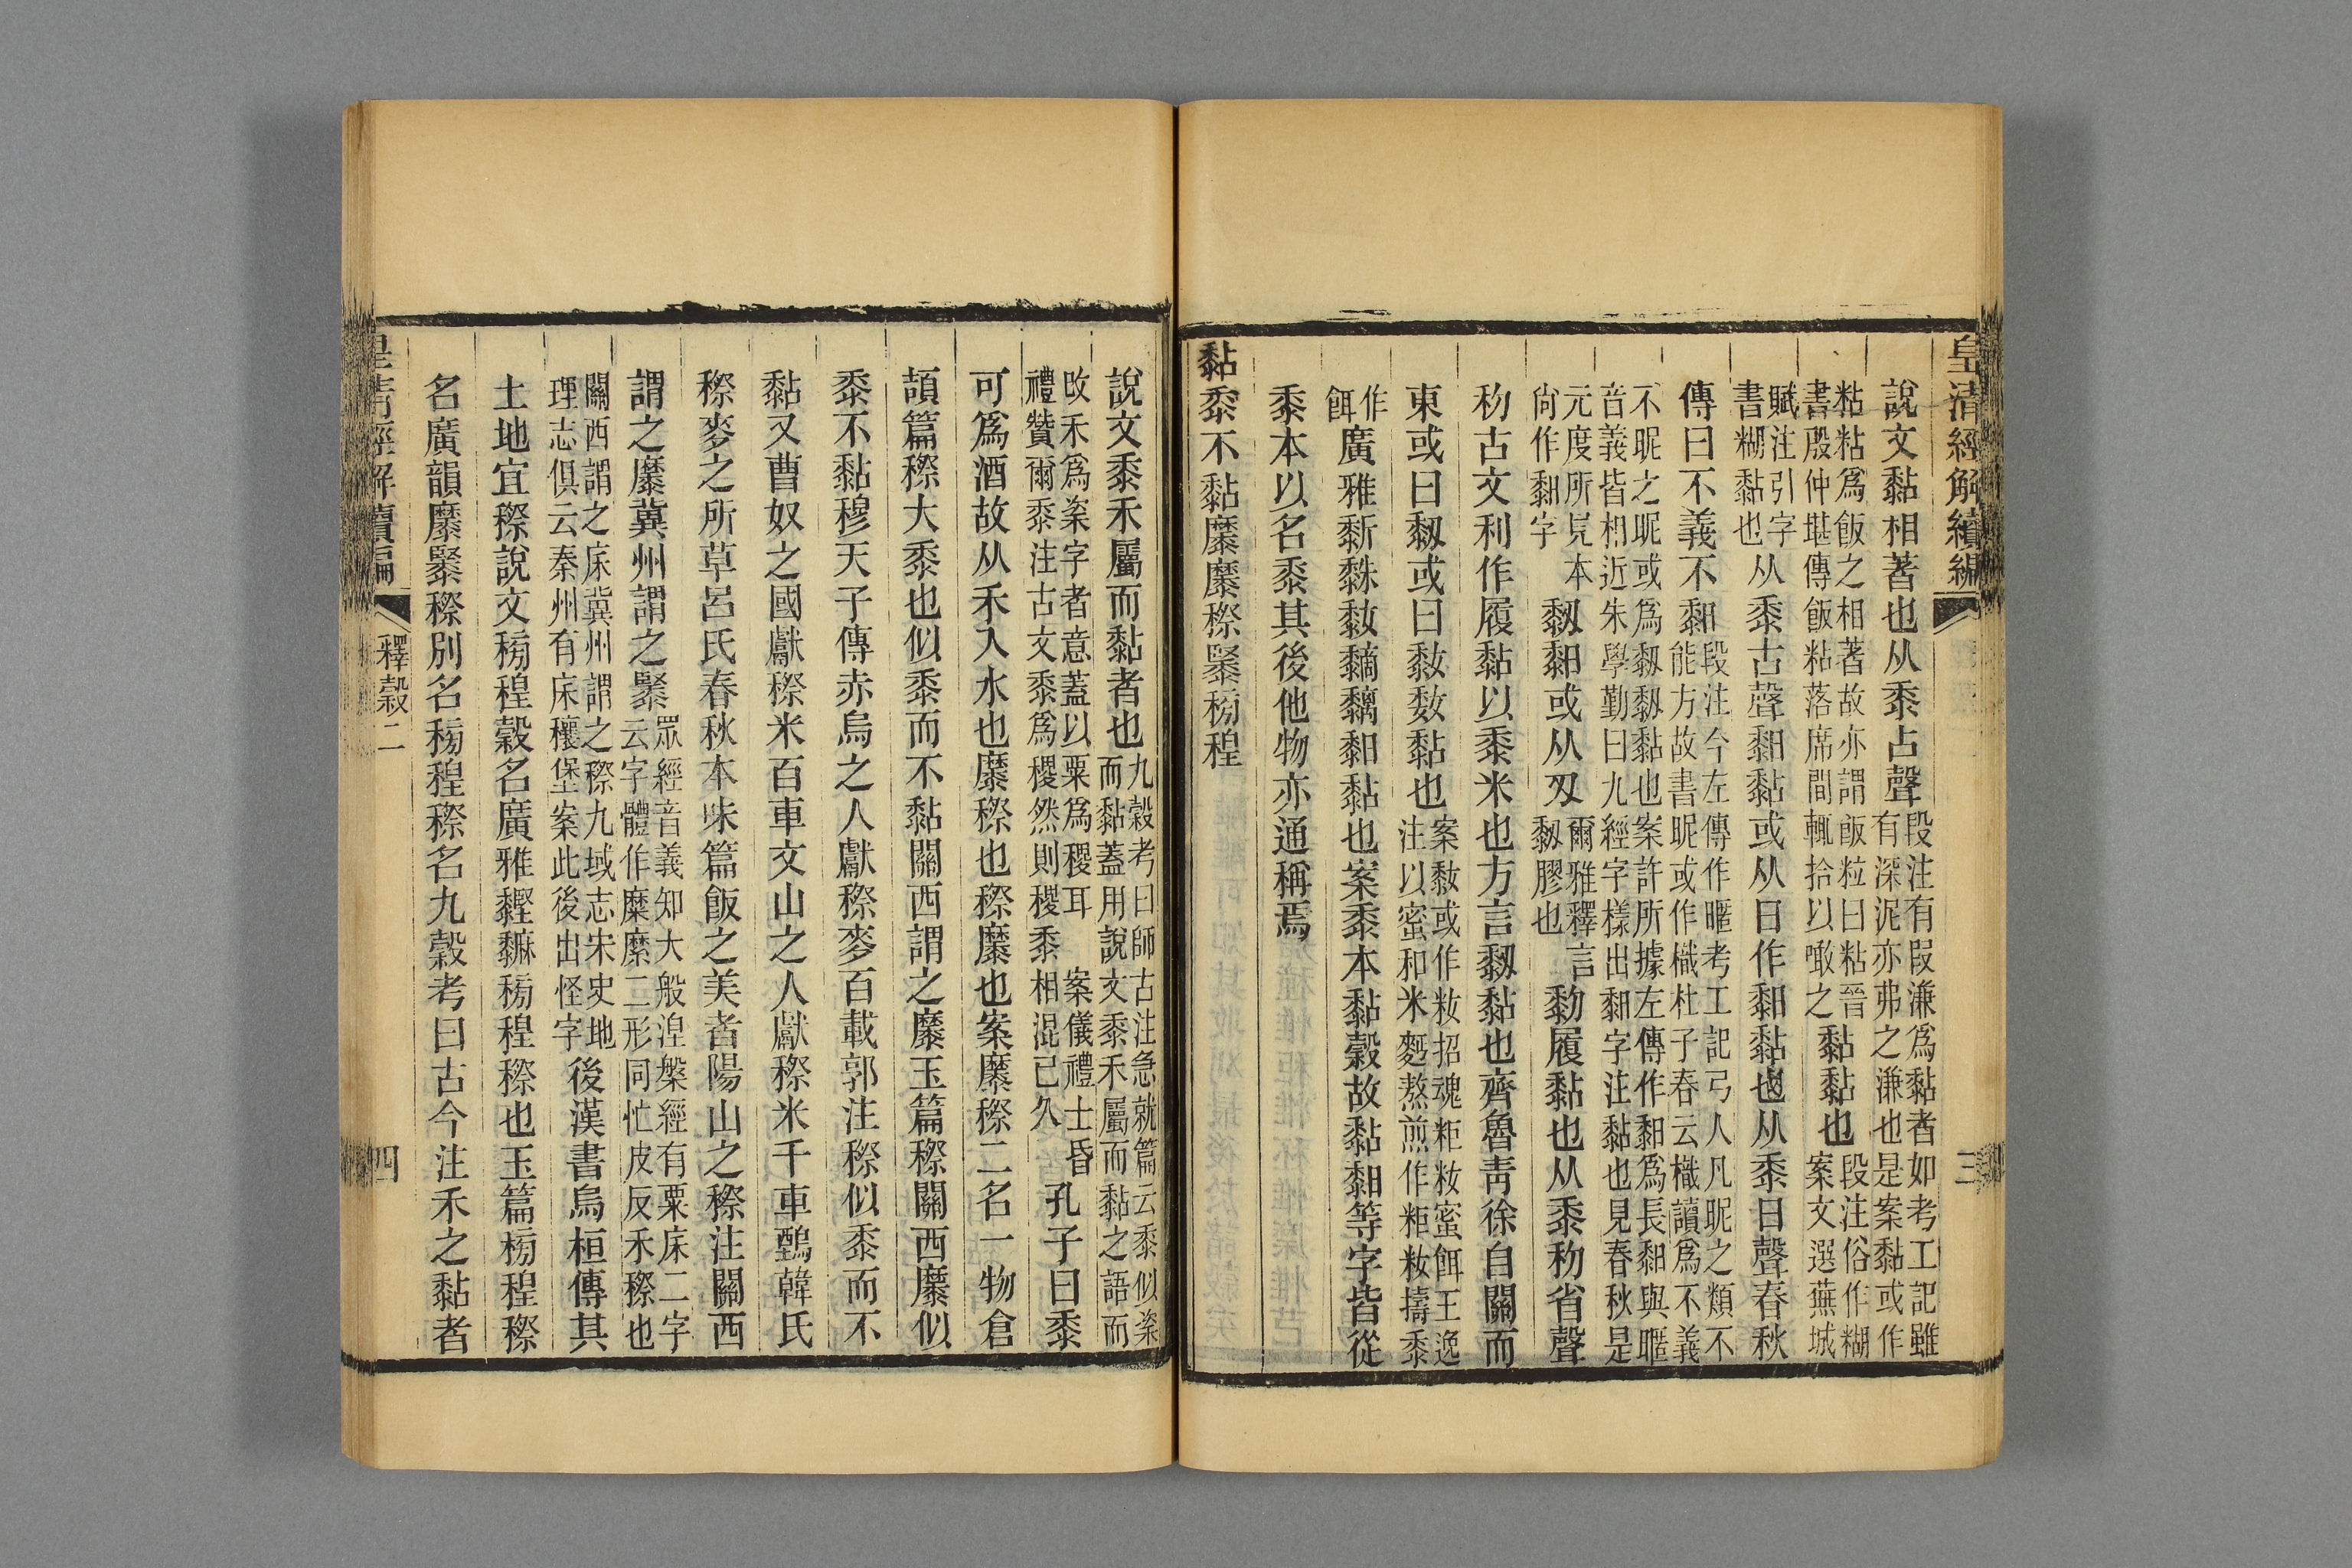 皇清經解續編
三
說文黏相著也从黍占聲段注有叚溓爲黏者如考工記雖有深泥亦弗之溓也是案黏或作
粘粘爲飯之相著故亦謂飯粒曰粘晉書殷仲堪傳飯粘落席間輒拾以噉之黏黏也段注俗作糊案文選蕪城
賦注引字書糊黏也从黍古聲䵒黏或从日作䵒黏也从黍日聲春秋
傳曰不義不䵒段注今左傳作暱考工記弓人凡昵之類不能方故書昵或作樴杜子春云樴讀爲不義
不昵之昵或爲䵑䵑黏也案許所據左傳作䵒爲長䵒與暱音義皆相近朱學勤曰九經字樣出䵒字注黏也見春秋是
元度所見本尙作䵒字䵑䵒或从刄爾雅釋言䵑膠也䵖履黏也从黍𥝢省聲
𥝢古文利作履黏以黍米也方言䵑黏也齊魯靑徐自關而
東或曰䵑或曰䵘䵘黏也案䵘或作籹招魂粔籹蜜餌王逸注以蜜和米麪熬煎作粔籹擣黍
作餌廣雅䵘䵩䵒黏也案黍本黏穀故黏䵒等字皆從
黍本以名黍其後他物亦通稱焉
黏黍不黏䵚䵚穄䅍䄒䅣
說文黍禾屬而黏者也九穀考曰師古注急就篇云黍似粢而黏蓋用說文黍禾屬而黏之語而
攺禾爲粢字者意蓋以粟爲稷耳　案儀禮士昏禮贊爾黍注古文黍爲稷然則稷黍相混已久孔子曰黍
可爲酒故从禾入水也䵚穄也穄䵚也案䵚穄二名一物倉
頡篇穄大黍也似黍而不黏關西謂之䵚玉篇穄關西䵚似
黍不黏穆天子傳赤烏之人獻穄麥百載郭注穄似黍而不
黏又曹奴之國獻穄米百車文山之人獻穄米千車鵽韓氏
穄麥之所草呂氏春秋本味篇飯之美者陽山之穄注關西
謂之䵚冀州謂之䅍眾經音義知大般涅槃經有粟床二字云字體作糜䵚二形同忙皮反禾穄也
關西謂之床冀州謂之穄九域志宋史地理志俱云秦州有床穰堡案此後出怪字後漢書烏桓傳其
土地宜穄說文䄒䅣穀名廣雅䵛䵇䄒䅣穄也玉篇䄒䅣穄
名廣韻䵚䅍穄別名䄒䅣穄名九穀考曰古今注禾之黏者
皇清經解續編
釋穀二
四